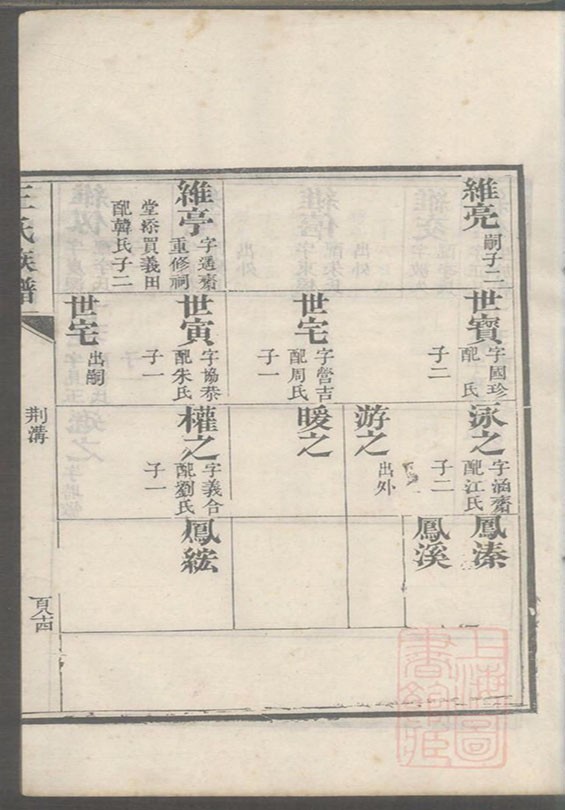 維亮
嗣子二
維亭
字適齋
重修祠
堂添買義田
配韓氏子二
世寶
字國珍
配 氏
子二
世宅
字營吉
配周氏
子一
世寅
字協恭
配朱氏
子一
世宅
出嗣
泳之
字涵齋
配江氏
子二
游之
出外
暖之
權之
字義合
配劉氏
子一
鳳溱
鳳溪
鳳紘
王氏族譜
荆溝
百八十四
上海圖
書館藏